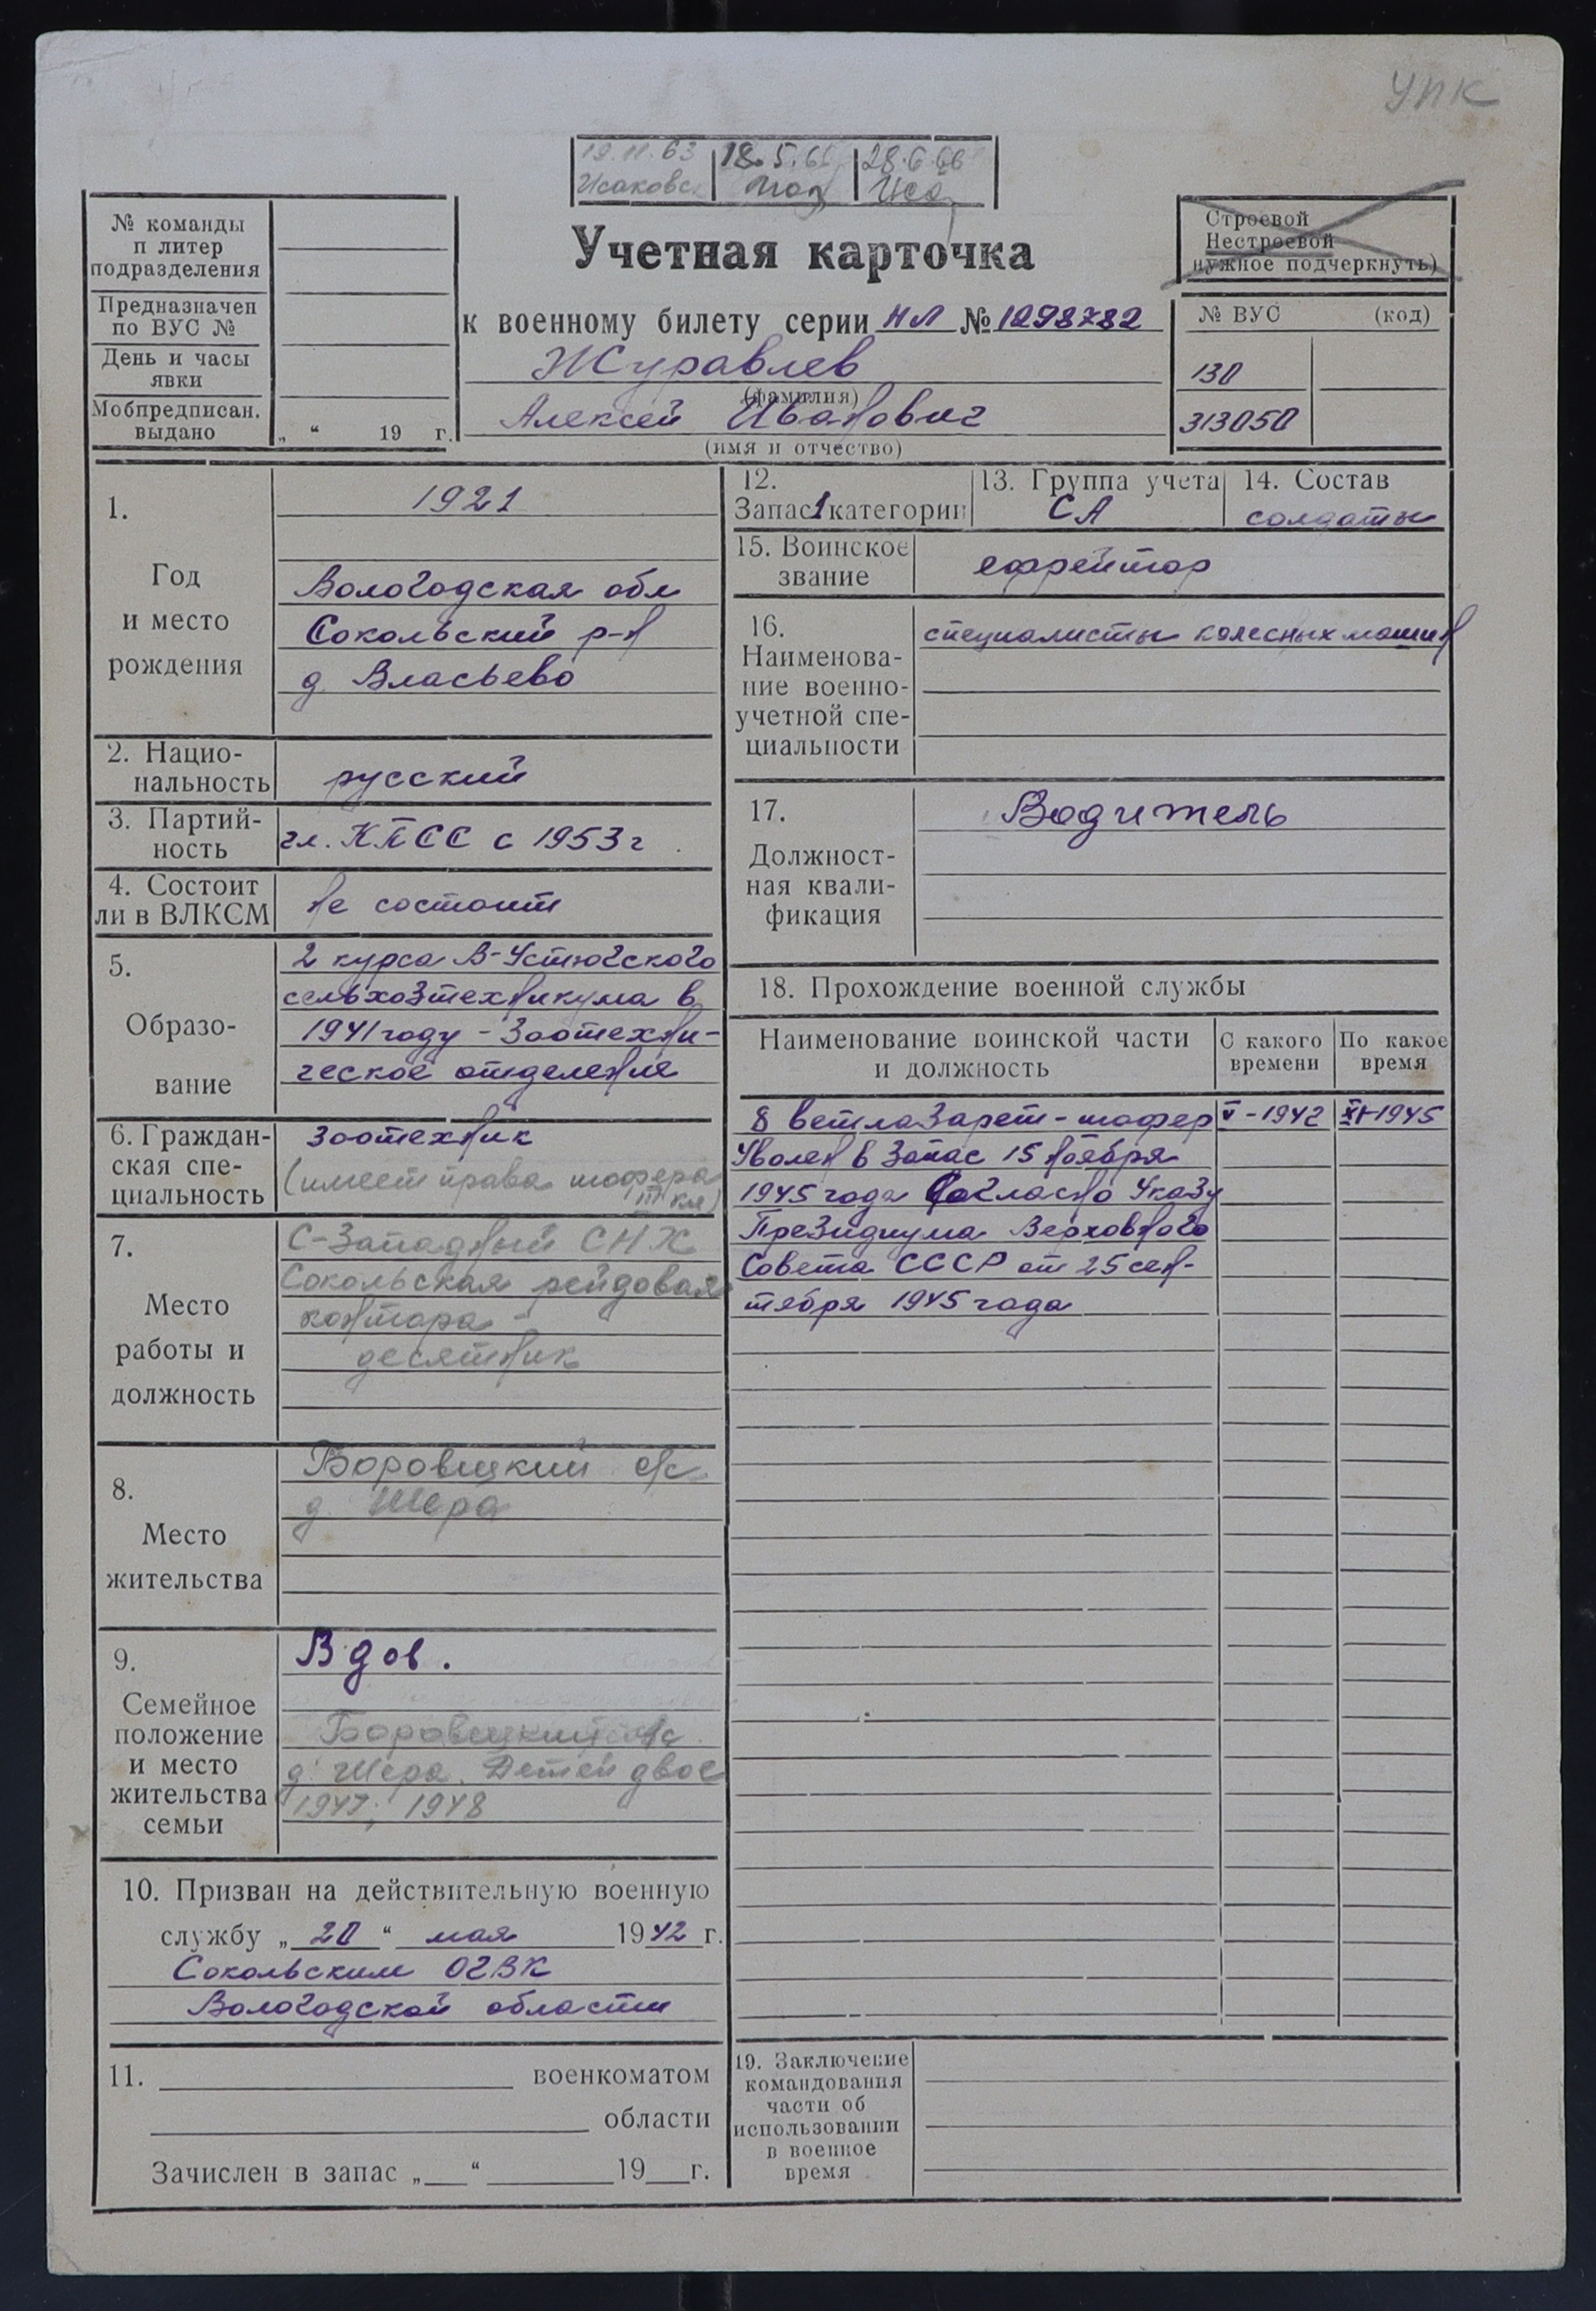 УПК
19.11.63 18.5.66 28.6.66
Исаковс
Учетная карточка
к военному билету серии НЛ № 1298782
Журавлев
(фамилия)
Алексей Иванович
(имя и отчество)
№ команды
п литер
подразделения
Предназначен
по ВУС №
День и часы
явки
Мобпредписан.
выдано „ “ 19 г.
Строевой
Нестроевой
нужное подчеркнуть)
№ ВУС (код)
130
313050
1.
Год
и место
рождения
1921
Вологодская обл
Сокольский р-н
д Власьево
2. Нацио-
нальность
русский
3. Партий-
ность
чл. КПСС с 1953 г.
4. Состоит
ли в ВЛКСМ
не состоит
5.
Образо-
вание
2 курса В-Устюгского
сельхозтехникума в
1941 году - Зоотехни-
ческое отделение
6. Граждан-
ская спе-
циальность
зоотехник
(имеет права шофера
III кл)
7.
Место
работы и
должность
С-Западный СНХ
Сокольская рейдовая
контора -
десятник
8.
Место
жительства
Боровецкий с/с
д. Шера
9.
Семейное
положение
и место
жительства
семьи
Вдов.
Боровецкий с/с
д. Шера. Детей двое
1947, 1948
10. Призван на действительную военную
службу „20“ мая 1942 г.
Сокольским ОГВК
Вологодской области
11. военкоматом
области
Зачислен в запас „ “ 19 г.
12.
Запас 1 категории
13. Группа учета
СА
14. Состав
солдаты
15. Воинское
звание
ефрейтор
16.
Наименова-
ние военно-
учетной спе-
циальности
специалисты колесных машин
17.
Должност-
ная квали-
фикация
Водитель
18. Прохождение военной службы
Наименование воинской части
и должность
С какого
времени
По какое
время
8 ветлазарет - шофер V - 1942 XI-1945
Уволен в запас 15 ноября
1945 года Согласно Указу
Президиума Верховного
Совета СССР от 25 сен-
тября 1945 года
19. Заключение
командования
части об
использовании
в военное
время